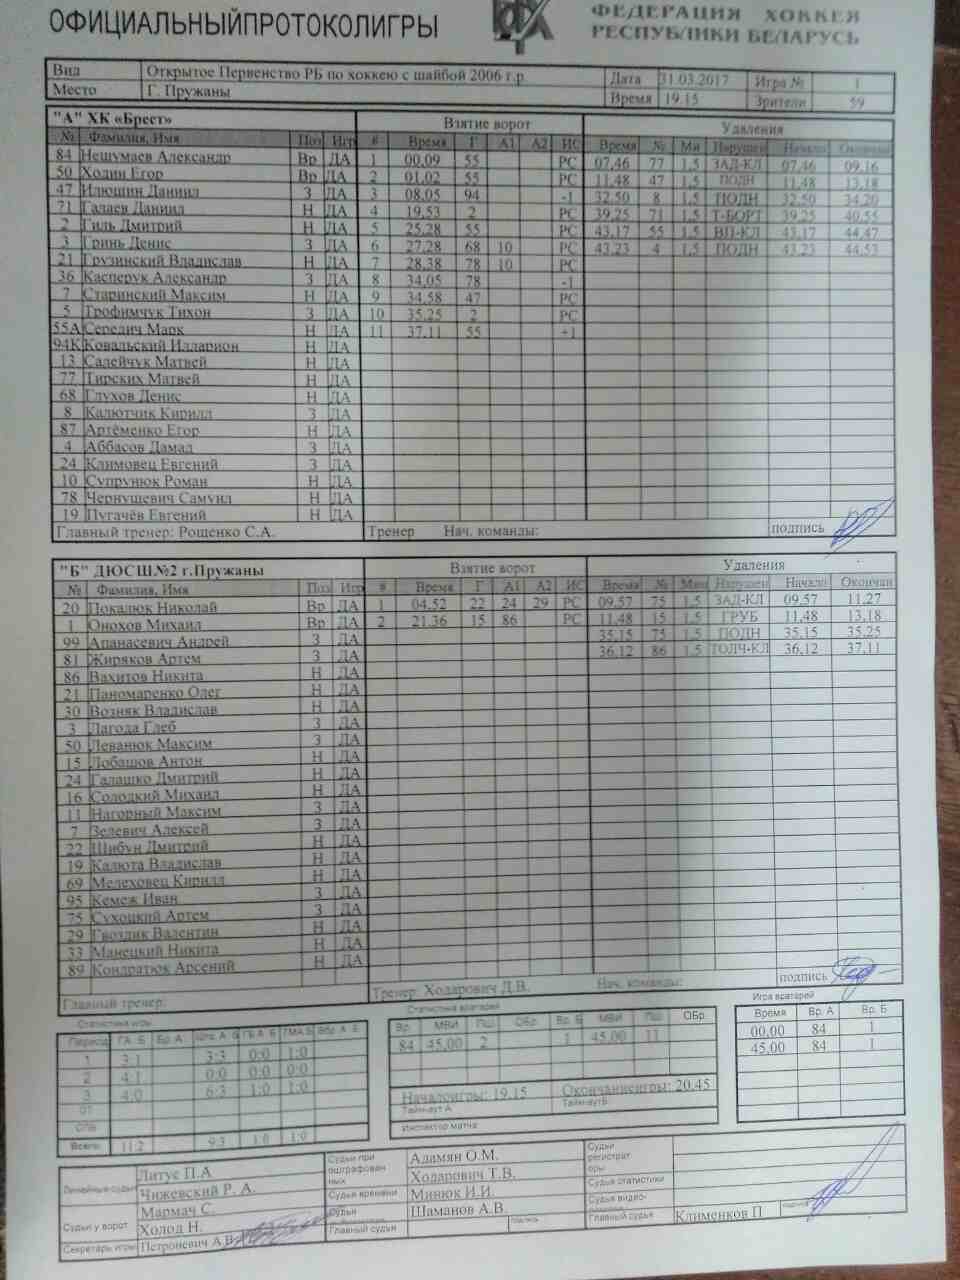 ОФИЦИАЛЬНЫЙПРОТОКОЛИГРЫ
ФЕДЕРАЦИЯ ХОККЕЯ
РЕСПУБЛИКИ БЕЛАРУСЬ
Вид Открытое Первенство РБ по хоккею с шайбой 2006 г.р Дата 31.03.2017 Игра № 1
Место Г. Пружаны Время 19.15 Зрители 59
"А" ХК «Брест» Взятие ворот Удаления
№ Фамилия, Имя Поз Игр # Время Г А1 А2 ИС Время № Ми Нарушен Начало Окончан
84 Нешумаев Александр Вр ДА 1 00,09 55 РС 07,46 77 1,5 ЗАД-КЛ 07,46 09,16
50 Ходин Егор Вр ДА 2 01,02 55 РС 11,48 47 1,5 ПОДН 11,48 13,18
47 Илюшин Даниил З ДА 3 08,05 94 -1 32,50 8 1,5 ПОДН 32,50 34,20
71 Галаев Даниил Н ДА 4 19,53 2 РС 39,25 71 1,5 Т-БОРТ 39,25 40,55
2 Гиль Дмитрий Н ДА 5 25,28 55 РС 43,17 55 1,5 ВП-КЛ 43,17 44,47
3 Гринь Денис З ДА 6 27,28 68 10 РС 43,23 4 1,5 ПОДН 43,23 44,53
21 Грузинский Владислав Н ДА 7 28,38 78 10 РС
36 Касперук Александр З ДА 8 34,05 78 -1
7 Старинский Максим Н ДА 9 34,58 47 РС
5 Трофимчук Тихон З ДА 10 35,25 2 РС
55А Середич Марк Н ДА 11 37,11 55 +1
94К Ковальский Илларион Н ДА
13 Салейчук Матвей Н ДА
77 Тирских Матвей Н ДА
68 Глухов Денис Н ДА
8 Калютчик Кирилл З ДА
87 Артёменко Егор Н ДА
4 Аббасов Дамад З ДА
24 Климовец Евгений З ДА
10 Супрунюк Роман Н ДА
78 Чернушевич Самуил Н ДА
19 Пугачёв Евгений Н ДА
Главный тренер: Рощенко С.А. Тренер Нач. команды: подпись
"Б" ДЮСШ№2 г.Пружаны Взятие ворот Удаления
№ Фамилия, Имя Поз Игр # Время Г А1 А2 ИС Время № Мин Нарушен Начало Окончан
20 Покалюк Николай Вр ДА 1 04,52 22 24 29 РС 09,57 75 1,5 ЗАД-КЛ 09,57 11,27
1 Онохов Михаил Вр ДА 2 21,36 15 86 РС 11,48 15 1,5 ГРУБ 11,48 13,18
99 Апанасевич Андрей З ДА 35,15 75 1,5 ПОДН 35,15 35,25
81 Жиряков Артем З ДА 36,12 86 1,5 ТОЛЧ-КЛ 36,12 37,11
86 Вахитов Никита Н ДА
21 Паномаренко Олег Н ДА
30 Возняк Владислав Н ДА
3 Лагода Глеб З ДА
50 Леванюк Максим З ДА
15 Лобашов Антон Н ДА
24 Галашко Дмитрий Н ДА
16 Солодкий Михаил Н ДА
11 Нагорный Максим З ДА
7 Зелевич Алексей З ДА
22 Шибун Дмитрий Н ДА
19 Калюта Владислав Н ДА
69 Мелеховец Кирилл Н ДА
95 Кемеж Иван З ДА
75 Сухоцкий Артем З ДА
29 Гвоздик Валентин Н ДА
33 Манецкий Никита Н ДА
89 Кондратюк Арсений Н ДА
Главный тренер: Тренер Ходарович Д.В. Нач. команды: подпись
Статистика игры Статистика вратарей Игра вратарей
Период ГА Б Бр А Вр МВИ ПШ ОБр Вр. Б МВИ ПШ ОБр Время Вр. А Вр. Б
84 45,00 2 1 45,00 11 00,00 84 1
45,00 84 1
1 3:1 3:3 0:0 1:0
2 4:1 0:0 0:0 0:0
3 4:0 6:3 1:0 1:0
ОТ
Всего 11:2 9:3 1:0 1:0
Началоигры: 19.15 Окончаниеигры: 20.45
Таймаут А ТаймаутБ
Инспектор матча
Линейные судьи Литус П.А
Чижевский Р. А.
Судьи у ворот Мармач С.
Холод Н.
Секретарь игры Петроневич А.В
Судьи при оштрафованных Адамян О.М.
Ходарович Т.В.
Судья времени Минюк И.И.
Судьи Шаманов А.В.
Главный судья
Судьи регистраторы
Судьи статистики
Судья видео-
Главный судья Клименков П